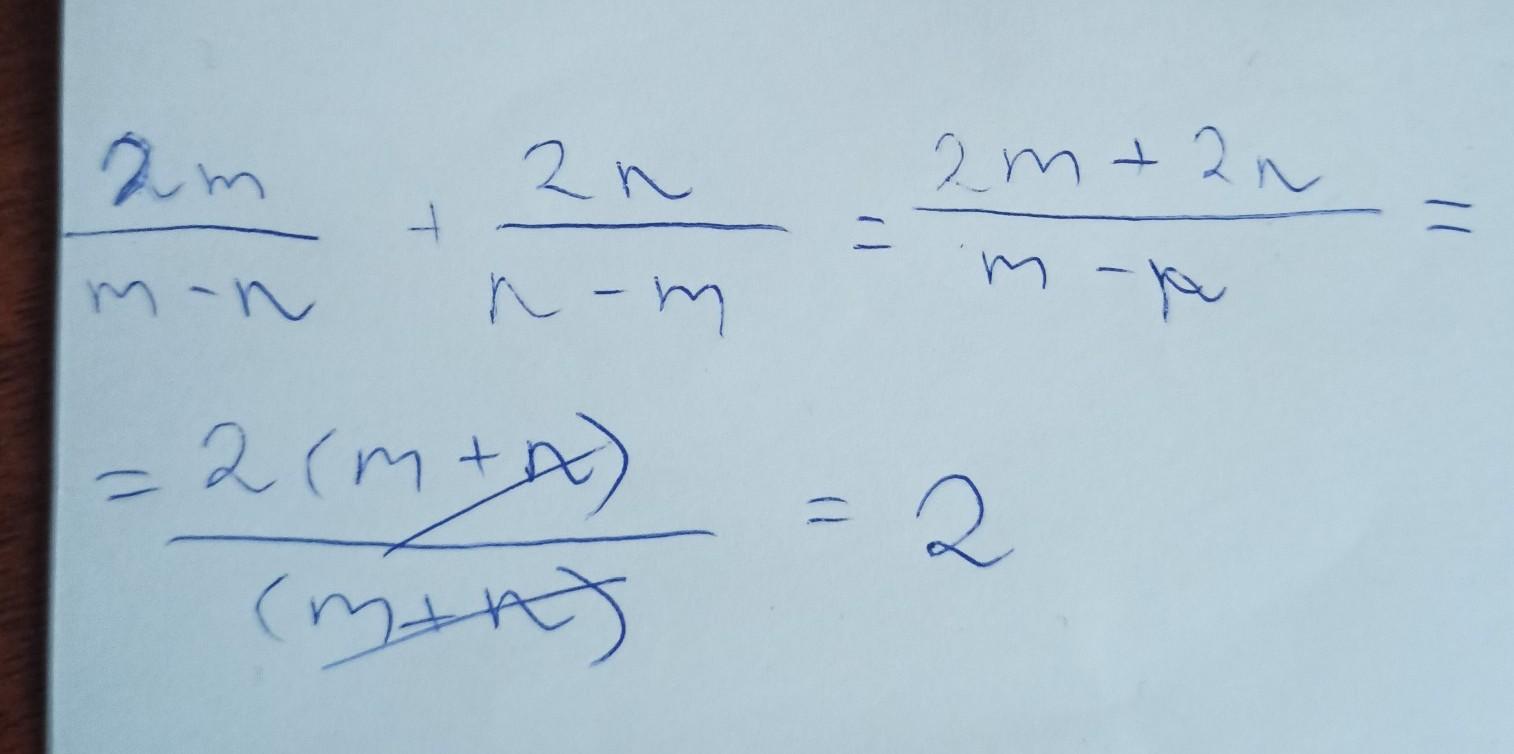 2m/(m-n) + 2n/(n-m) = (2m+2n)/(m-n) =
= 2(m+n)/(m+n) = 2